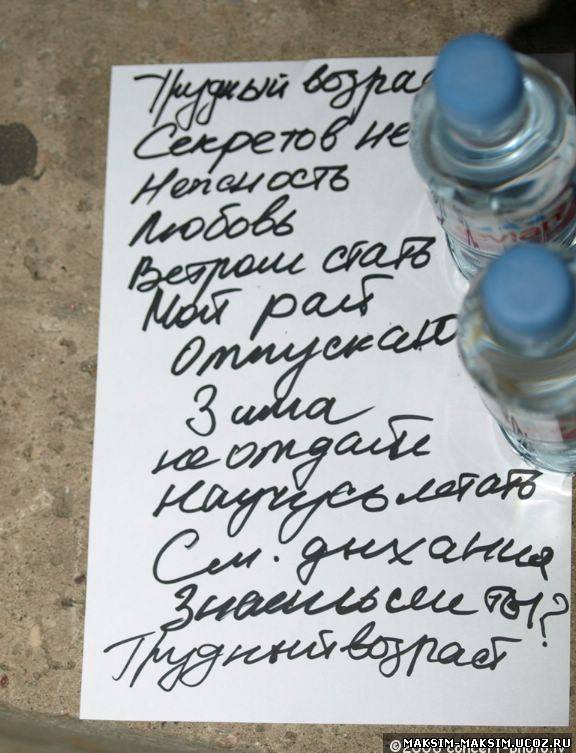 Трудный возра
Секретов не
Нежность
Любовь
Ветром стать
Мой рай
Отпускаю
Зима
не отдам
Научусь летать
См. дыхания
Знаешь ли ты?
Трудный возраст
evian
© 2006 concert-photo.ru
MAKSIM-MAKSIM.UCOZ.RU